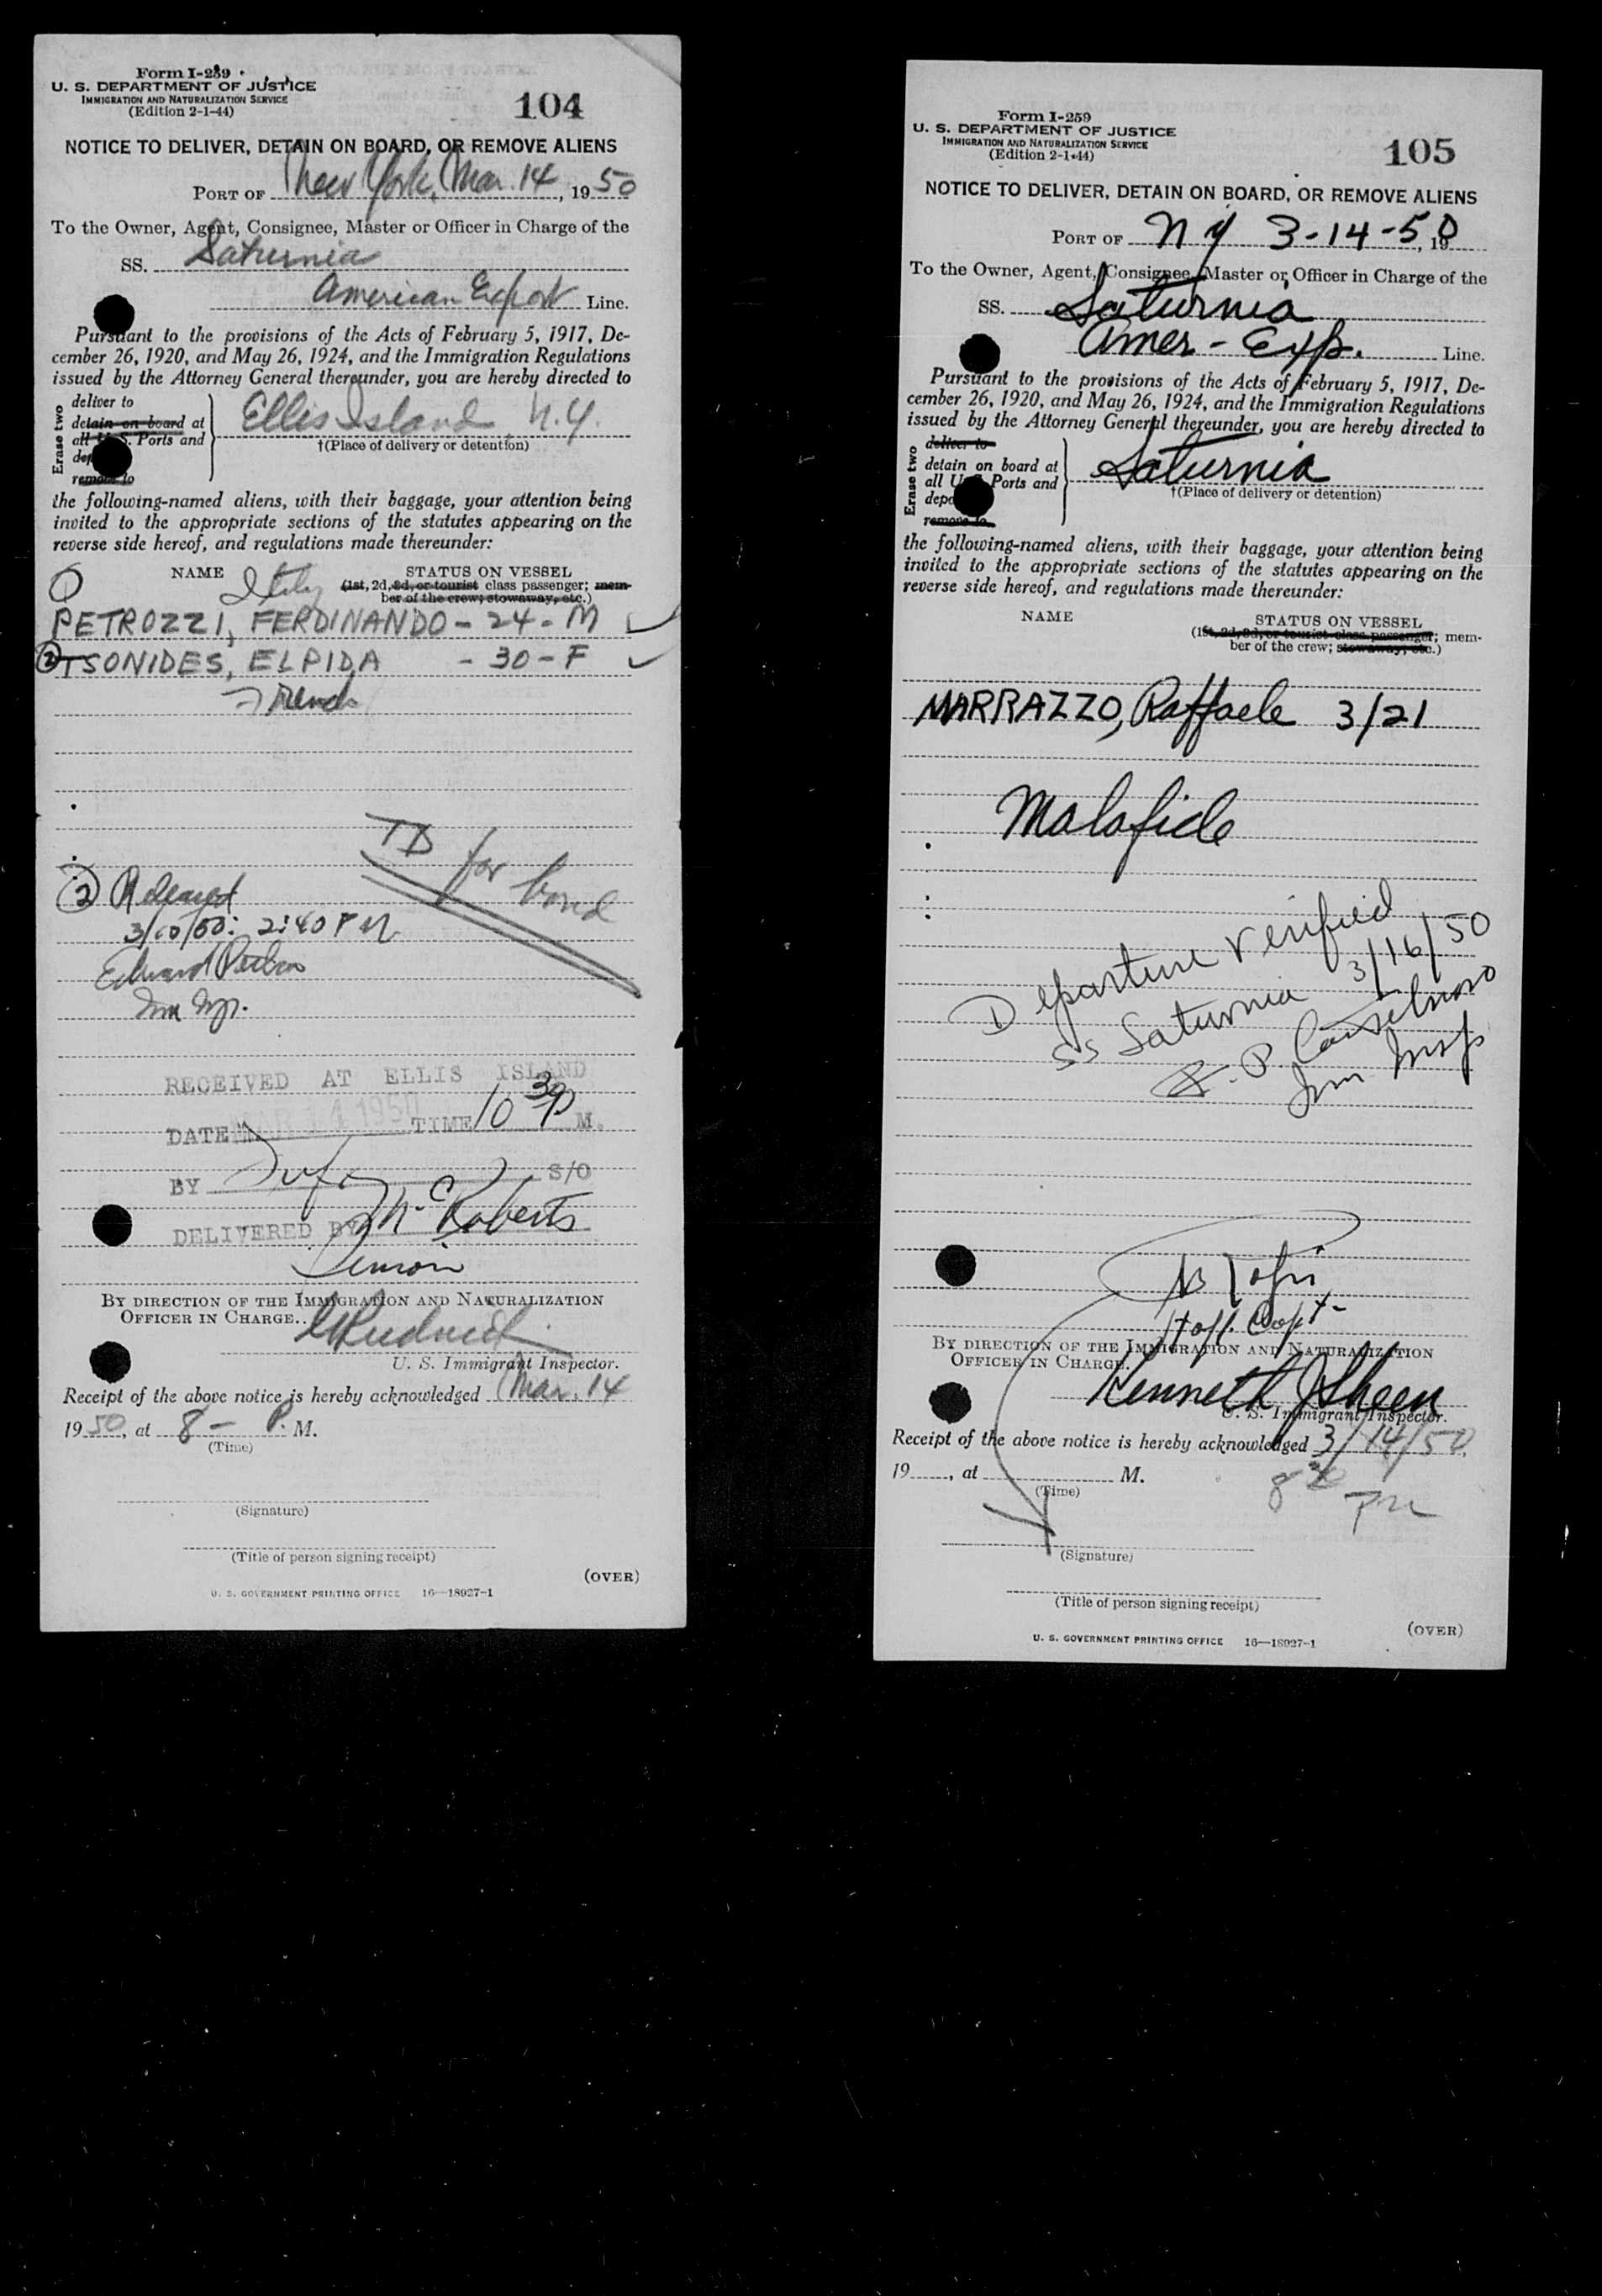 Form I-259
U. S. DEPARTMENT OF JUSTICE
IMMIGRATION AND NATURALIZATION SERVICE
(Edition 2-1-44)
104
NOTICE TO DELIVER, DETAIN ON BOARD, OR REMOVE ALIENS
PORT OF New York, Mar. 14, 1950
To the Owner, Agent, Consignee, Master or Officer in Charge of the
SS. Saturnia
American Export Line.
Pursuant to the provisions of the Acts of February 5, 1917, De-
cember 26, 1920, and May 26, 1924, and the Immigration Regulations
issued by the Attorney General thereunder, you are hereby directed to
Erase two
deliver to
detain on board at
all U. S. Ports and
remove to
Ellis Island N.Y.
†(Place of delivery or detention)
the following-named aliens, with their baggage, your attention being
invited to the appropriate sections of the statutes appearing on the
reverse side hereof, and regulations made thereunder:
NAME Italy STATUS ON VESSEL
(1st, 2d, 3d, or tourist class passenger; mem-
ber of the crew; stowaway, etc.)
PETROZZI, FERDINANDO - 24 - M
② TSONIDES, ELPIDA - 30 - F
French
TD for bond
② Released
2:40 PM
Edward
Imm Insp.
RECEIVED AT ELLIS ISLAND
DATE MAR 14 1950 TIME 10 30 P M.
BY S/O
DELIVERED BY McRoberts
BY DIRECTION OF THE IMMIGRATION AND NATURALIZATION
OFFICER IN CHARGE.
U. S. Immigrant Inspector.
Receipt of the above notice is hereby acknowledged Mar. 14
1950, at 8 - P. M.
(Time)
(Signature)
(Title of person signing receipt)
(OVER)
U. S. GOVERNMENT PRINTING OFFICE 16—18927-1
Form I-259
U. S. DEPARTMENT OF JUSTICE
IMMIGRATION AND NATURALIZATION SERVICE
(Edition 2-1-44)
105
NOTICE TO DELIVER, DETAIN ON BOARD, OR REMOVE ALIENS
PORT OF NY 3-14-50, 19
To the Owner, Agent, Consignee, Master or Officer in Charge of the
SS. Saturnia
Amer - Exp. Line.
Pursuant to the provisions of the Acts of February 5, 1917, De-
cember 26, 1920, and May 26, 1924, and the Immigration Regulations
issued by the Attorney General thereunder, you are hereby directed to
Erase two
deliver to
detain on board at
all U. S. Ports and
remove to
Saturnia
†(Place of delivery or detention)
the following-named aliens, with their baggage, your attention being
invited to the appropriate sections of the statutes appearing on the
reverse side hereof, and regulations made thereunder:
NAME STATUS ON VESSEL
(1st, 2d, 3d, or tourist class passenger; mem-
ber of the crew; stowaway, etc.)
MARRAZZO, Raffaele 3/21
Malafide
Departure verified
SS Saturnia 3/16/50
Imm Insp
Staff Capt
BY DIRECTION OF THE IMMIGRATION AND NATURALIZATION
OFFICER IN CHARGE.
Kenneth J Sheen
U. S. Immigrant Inspector.
Receipt of the above notice is hereby acknowledged 3/14/50
19, at M.
(Time)
8 30 PM
(Signature)
(Title of person signing receipt)
(OVER)
U. S. GOVERNMENT PRINTING OFFICE 16—18927-1